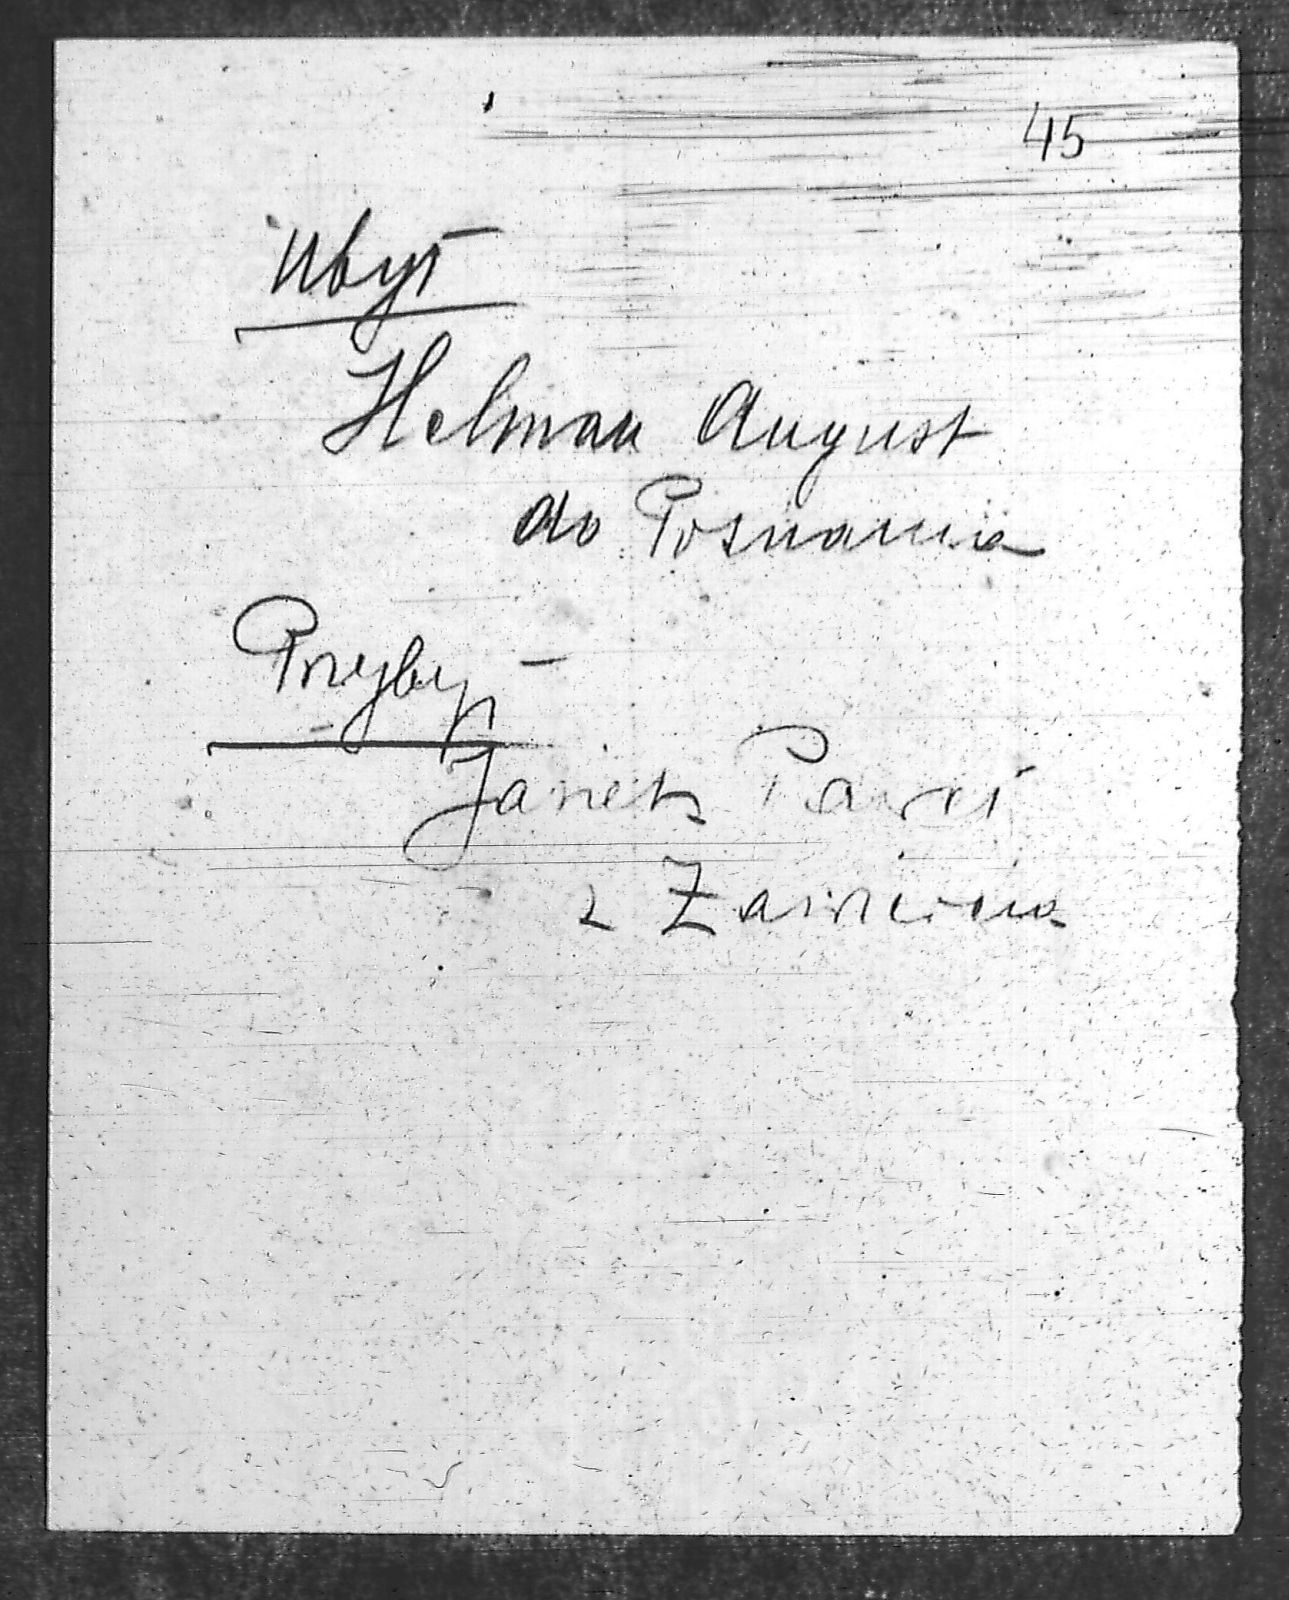 45
Ubył
Helman August
do Poznania
Przybył
Janek Paweł
z Zawiercia